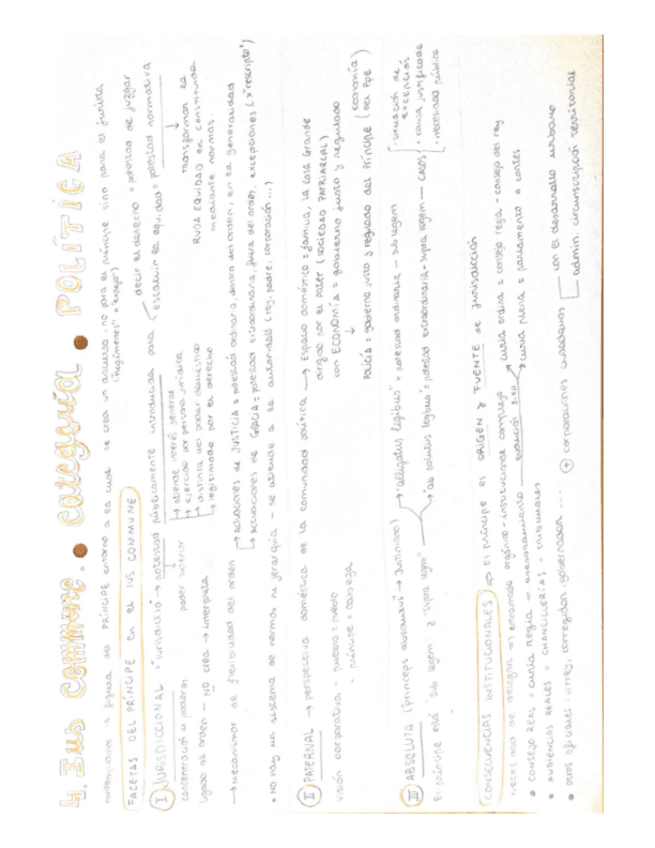 4. Ius COMMUNE • categoría • POLÍTICA
contemplamos la figura del PRÍNCIPE entorno a la cual se crea un discurso, no para el príncipe sino para el jurista
("regimenes" = "espejo")
FACETAS DEL PRÍNCIPE en el IUS COMMUNE
I JURISDICCIONAL = "iurisdictio" → potestad públicamente introducida para
decir el derecho = potestad de juzgar
establecer la equidad = potestad normativa
↓
transforman la
RUDA EQUIDAD en constituida
mediante normas.
concentración de poderes
poder superior
→ atiende interés general
→ ejercido por persona jurídica
→ distinta del poder doméstico
→ legitimado por el derecho
ligado al orden — NO crea → interpreta
→ mecanismos de flexibilidad del orden
→ Actuaciones de JUSTICIA = potestad ordinaria, dentro del orden, en la generalidad
→ Actuaciones de GRACIA = potestad extraordinaria, fuera del orden, excepciones ("rescripto")
• NO hay un sistema de normas, ni jerarquía — se atiende a la autoridad (rey, padre, corporación...)
II PATERNAL → perspectiva doméstica de la comunidad política → Espacio doméstico = familia, la casa grande
dirigido por el pater (SOCIEDAD PATRIARCAL)
con ECONOMÍA = gobierno justo y regulado
↓
POLICÍA = gobierno justo y regulado del Príncipe (economía del ppe)
visión corporativa — pueblo = cuerpo
príncipe = cabeza
III ABSOLUTA (princeps absolutus → Justiniano)
→ "alligatus legibus" = potestad ordinaria — sub legem
→ "ab solutus legibus" = potestad extraordinaria - supra legem — CASOS
· situación de excepción
· causa justificada
· necesidad pública
El príncipe está "sub legem" y "supra legem"
CONSECUENCIAS INSTITUCIONALES ⇒ El príncipe es ORIGEN y FUENTE de jurisdicción
necesidad de delegar ⇒ entramado orgánico-institucional complejo
• CONSEJO REAL = curia regia — asesoramiento
evolución s.XIII
→ curia ordinaria = consejo regia - consejo del rey
→ curia plena = parlamento o cortes
• AUDIENCIAS REALES = CHANCILLERÍAS = tribunales
• otros oficiales: virrey, corregidor, gobernador ... ⊕ corporaciones ciudadanas
con el desarrollo urbano
admin. circunscripción territorial